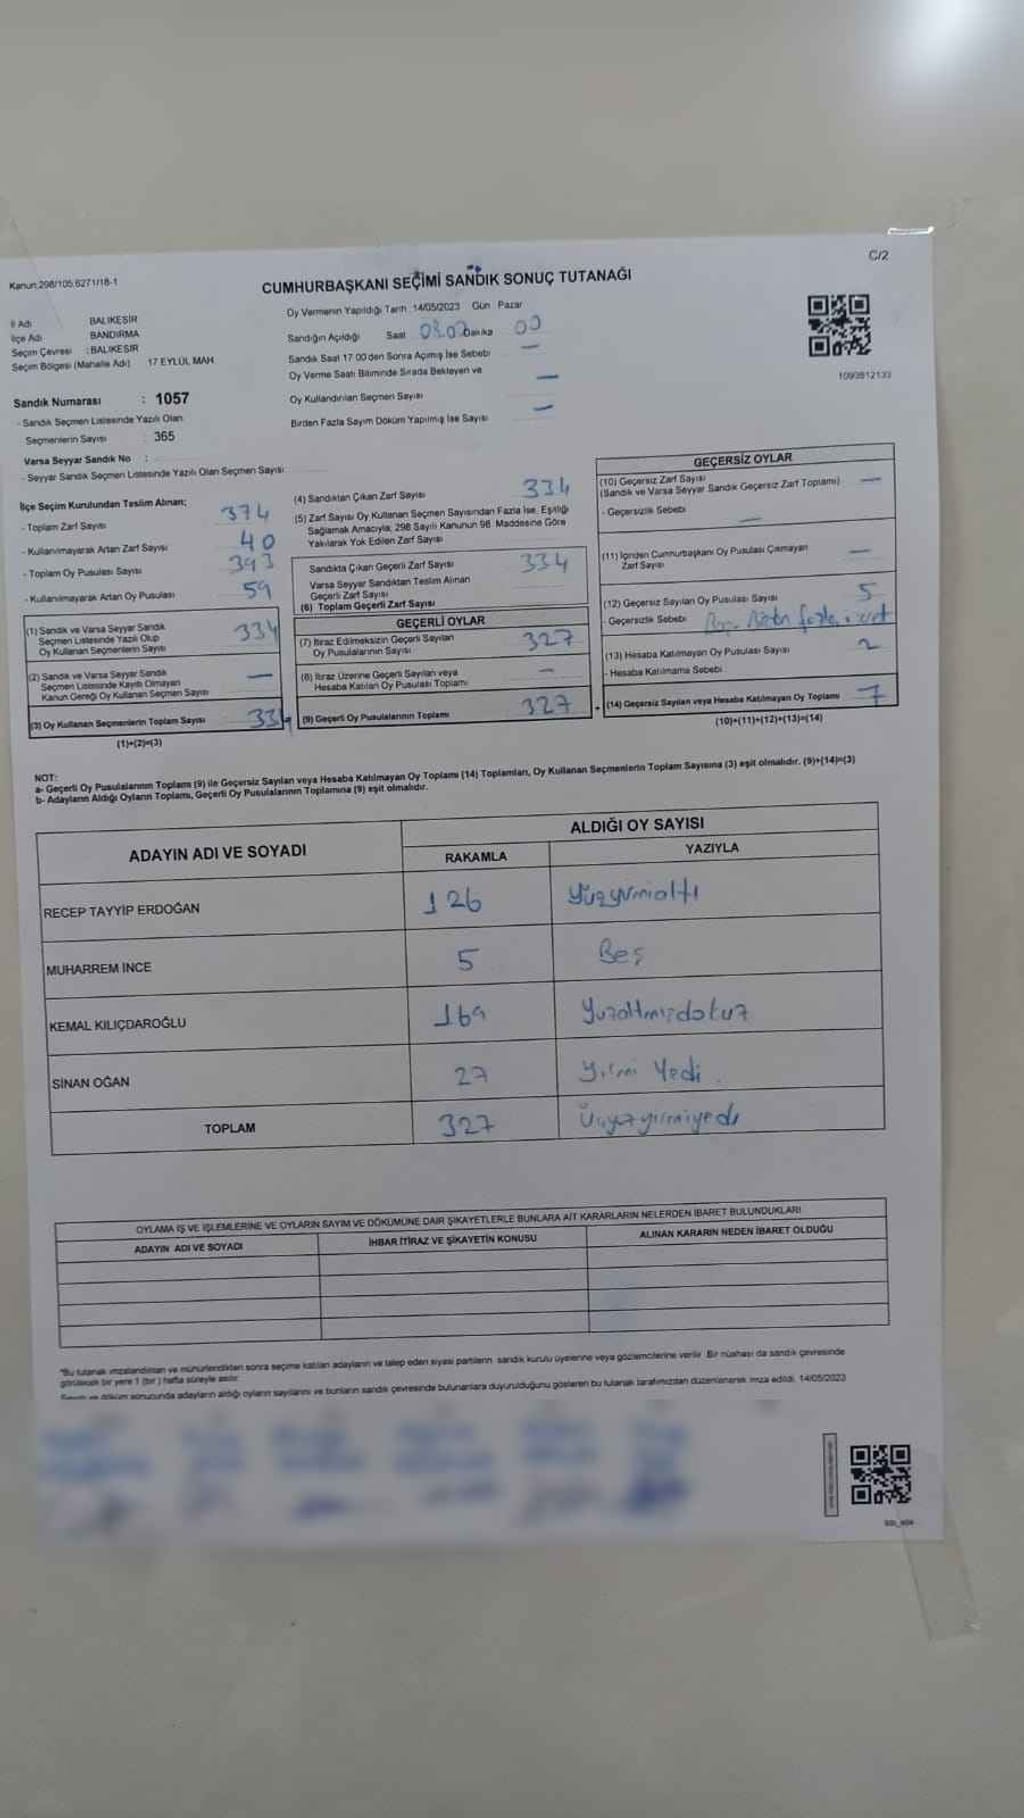 C/2
Kanun:298/105,6271/18-1
CUMHURBAŞKANI SEÇİMİ SANDIK SONUÇ TUTANAĞI
İl Adı BALIKESİR
İlçe Adı BANDIRMA
Seçim Çevresi :BALIKESİR
Seçim Bölgesi (Mahalle Adı) 17 EYLÜL MAH.
Oy Vermenin Yapıldığı Tarih :14/05/2023 Gün Pazar
Sandığın Açıldığı Saat Dakika 00
Sandık Saat 17.00'den Sonra Açılmış İse Sebebi —
Oy Verme Saati Bitiminde Sırada Bekleyen ve
Oy Kullandırılan Seçmen Sayısı —
Birden Fazla Sayım Döküm Yapılmış İse Sayısı —
1093812133
Sandık Numarası : 1057
- Sandık Seçmen Listesinde Yazılı Olan
Seçmenlerin Sayısı : 365
Varsa Seyyar Sandık No :
- Seyyar Sandık Seçmen Listesinde Yazılı Olan Seçmen Sayısı
İlçe Seçim Kurulundan Teslim Alınan;
- Toplam Zarf Sayısı 374
- Kullanılmayarak Artan Zarf Sayısı 40
- Toplam Oy Pusulası Sayısı 393
- Kullanılmayarak Artan Oy Pusulası 59
(1) Sandık ve Varsa Seyyar Sandık
Seçmen Listesinde Yazılı Olup
Oy Kullanan Seçmenlerin Sayısı 334
(2) Sandık ve Varsa Seyyar Sandık
Seçmen Listesinde Kayıtlı Olmayan
Kanun Gereği Oy Kullanan Seçmen Sayısı —
(3) Oy Kullanan Seçmenlerin Toplam Sayısı 334
(1)+(2)=(3)
(4) Sandıktan Çıkan Zarf Sayısı 334
(5) Zarf Sayısı Oy Kullanan Seçmen Sayısından Fazla İse, Eşitliği
Sağlamak Amacıyla; 298 Sayılı Kanunun 98. Maddesine Göre
Yakılarak Yok Edilen Zarf Sayısı
Sandıkta Çıkan Geçerli Zarf Sayısı 334
Varsa Seyyar Sandıktan Teslim Alınan
Geçerli Zarf Sayısı
(6) Toplam Geçerli Zarf Sayısı
GEÇERLİ OYLAR
(7) İtiraz Edilmeksizin Geçerli Sayılan
Oy Pusulalarının Sayısı 327
(8) İtiraz Üzerine Geçerli Sayılan veya
Hesaba Katılan Oy Pusulası Toplamı —
(9) Geçerli Oy Pusulalarının Toplamı 327
GEÇERSİZ OYLAR
(10) Geçersiz Zarf Sayısı —
(Sandık ve Varsa Seyyar Sandık Geçersiz Zarf Toplamı)
- Geçersizlik Sebebi —
(11) İçinden Cumhurbaşkanı Oy Pusulası Çıkmayan
Zarf Sayısı —
(12) Geçersiz Sayılan Oy Pusulası Sayısı 5
- Geçersizlik Sebebi
(13) Hesaba Katılmayan Oy Pusulası Sayısı 2
- Hesaba Katılmama Sebebi
+ (14) Geçersiz Sayılan veya Hesaba Katılmayan Oy Toplamı 7
(10)+(11)+(12)+(13)=(14)
NOT:
a- Geçerli Oy Pusulalarının Toplamı (9) ile Geçersiz Sayılan veya Hesaba Katılmayan Oy Toplamı (14) Toplamları, Oy Kullanan Seçmenlerin Toplam Sayısına (3) eşit olmalıdır. (9)+(14)=(3)
b- Adayların Aldığı Oyların Toplamı, Geçerli Oy Pusulalarının Toplamına (9) eşit olmalıdır.
ADAYIN ADI VE SOYADI
ALDIĞI OY SAYISI
RAKAMLA YAZIYLA
RECEP TAYYİP ERDOĞAN 126 Yüzyirmialtı
MUHARREM İNCE 5 Beş
KEMAL KILIÇDAROĞLU 169 Yüzaltmışdokuz
SİNAN OĞAN 27 Yirmi Yedi
TOPLAM 327 Üçyüzyirmiyedi
OYLAMA İŞ VE İŞLEMLERİNE VE OYLARIN SAYIM VE DÖKÜMÜNE DAİR ŞİKAYETLERLE BUNLARA AİT KARARLARIN NELERDEN İBARET BULUNDUKLARI
ADAYIN ADI VE SOYADI İHBAR İTİRAZ VE ŞİKAYETİN KONUSU ALINAN KARARIN NEDEN İBARET OLDUĞU
*Bu tutanak imzalandıktan ve mühürlendikten sonra seçime katılan adayların ve talep eden siyasi partilerin sandık kurulu üyelerine veya gözlemcilerine verilir. Bir nüshası da sandık çevresinde
görülecek bir yere 1 (bir) hafta süreyle asılır.
Sayım ve döküm sonucunda adayların aldığı oyların sayılarını ve bunların sandık çevresinde bulunanlara duyurulduğunu gösteren bu tutanak tarafımızdan düzenlenerek imza edildi. 14/05/2023